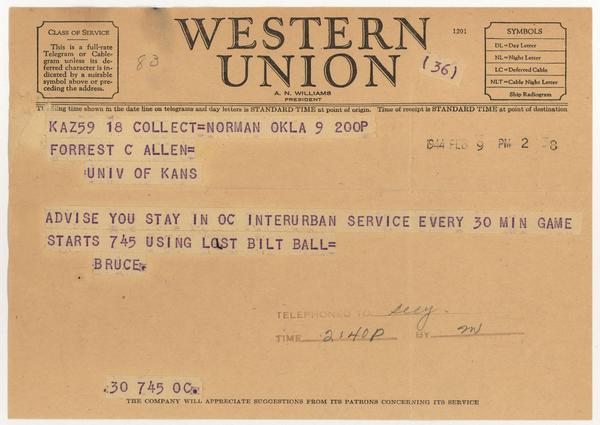 CLASS OF SERVICE
This is a full-rate
Telegram or Cable-
gram unless its de-
ferred character is in-
dicated by a suitable
symbol above or pre-
ceding the address.
83
WESTERN
UNION
A. N. WILLIAMS
PRESIDENT
1201
(36)
SYMBOLS
DL=Day Letter
NL=Night Letter
LC=Deferred Cable
NLT=Cable Night Letter
Ship Radiogram
time shown in the date line on telegrams and day letters is STANDARD TIME at point of origin. Time of receipt is STANDARD TIME at point of destination
KAZ59 18 COLLECT=NORMAN OKLA 9 200P
1944 FEB 9 PM 2 38
FORREST C ALLEN=
UNIV OF KANS
ADVISE YOU STAY IN OC INTERURBAN SERVICE EVERY 30 MIN GAME
STARTS 745 USING LOST BILT BALL=
BRUCE.
TELEPHONED TO secy.
TIME 2:40P BY m
30 745 OC.
THE COMPANY WILL APPRECIATE SUGGESTIONS FROM ITS PATRONS CONCERNING ITS SERVICE